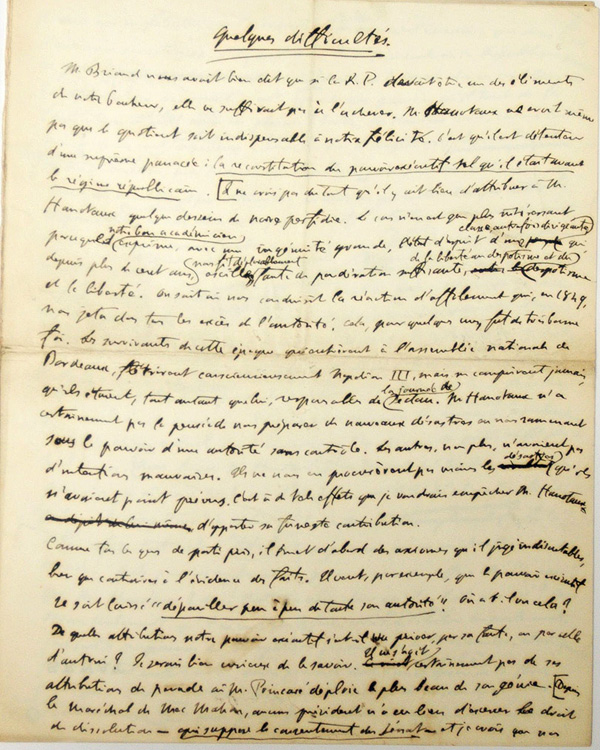 Quelques difficultés.
M. Briand nous avait bien dit que si la R. P. devait être un des éléments
de notre bonheur, elle ne suffirait pas à l'achever. M. Hanotaux ne croit même
pas que le quotient soit indispensable à notre félicité. C'est qu'il est détenteur
d'une suprême panacée : la reconstitution du pouvoir exécutif tel qu'il était avant
le régime républicain. Je ne crois pas du tout qu'il y ait lieu d'attribuer à M.
Hanotaux quelque dessein de noire perfidie. Le cas n'en est que plus intéressant
notre bon académicien classe autrefois dirigeante
parce que exprime, avec une ingénuité grande, l'état d'esprit d'une qui
non fit de la liberté au despotisme et du
depuis plus de cent ans oscille faute de pondération suffisante, despotisme
et la liberté. On sait où nous conduisit la réaction d'affolement qui, en 1849,
nous jeta dans tous les excès de l'autorité, cela, pour quelques uns fut de très bonne
foi. Les survivants de cette époque qui exécutèrent à l'assemblée nationale de
Bordeaux, flétrirent consciencieusement Napoléon III, mais ne comprirent jamais,
la journée de
qu'ils étaient, tout autant que lui, responsables de Sedan. M. Hanotaux n'a
certainement pas la pensée de nous préparer de nouveaux désastres en nous ramenant
sous le pouvoir d'une autorité sans contrôle. Les autres, non plus, n'avaient pas
désastres
d'intentions mauvaises. Ils ne nous en procurèrent pas moins les qu'ils
n'avaient point prévus. C'est à de tels effets que je voudrais empêcher M. Hanotaux
d'apporter sa funeste contribution.
Comme tous les gens de parti pris, il émet d'abord des axiomes qu'il juge indiscutables,
bien que contraires à l'évidence des faits. Il veut, par exemple, que le pouvoir exécutif
se soit laissé « dépouiller peu à peu de toute son autorité ». Où a-t-il vu cela ?
De quelles attributions notre pouvoir exécutif s'est-il vu priver, par sa faute, ou par celle
Il ne s'agit
d'autrui ? Je serais bien curieux de le savoir. certainement pas de ses
attributions de parade où M. Poincaré déploie le plus beau de son génie. Depuis
le Maréchal de Mac Mahon, aucun président n'a eu lieu d'exercer le droit
de dissolution — qui suppose le consentement du Sénat — et je crois que nos